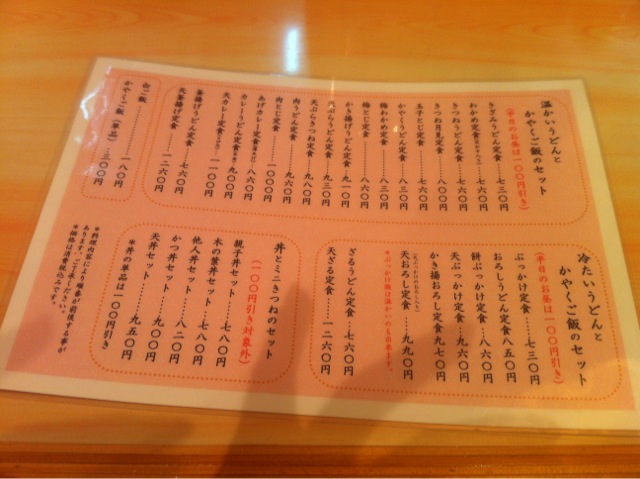 温かいうどんと
かやくご飯のセット
(平日のお昼は一〇〇円引き)
きざみうどん定食…七三〇円
わかめ定食
きつねうどん定食…七六〇円
きつね月見定食…八〇〇円
玉子とじ定食…七六〇円
かやくうどん定食…八三〇円
梅わかめ定食…八三〇円
梅とじ定食…八六〇円
かき揚げうどん定食…九一〇円
天ぷらうどん定食…九三〇円
天ぷらきつね定食…九八〇円
肉うどん定食…九六〇円
肉とじ定食…一〇〇〇円
あげカレー定食
カレーうどん定食
天カレー定食
釜揚げうどん定食…七六〇円
天釜揚げ定食…一二六〇円
白ご飯…一八〇円
かやくご飯(単品)…三〇〇円
冷たいうどんと
かやくご飯のセット
(平日のお昼は一〇〇円引き)
ぶっかけ定食…七三〇円
おろしうどん定食八五〇円
餅ぶっかけ定食…八六〇円
天ぶっかけ定食…九六〇円
かき揚おろし定食九七〇円
天おろし定食…九九〇円
※ぶっかけ類は温かいのも出来ます。
ざるうどん定食…七六〇円
天ざる定食…一二六〇円
丼とミニきつねのセット
(一〇〇円引き対象外)
親子丼セット…七八〇円
木の葉丼セット…七八〇円
他人丼セット…七八〇円
かつ丼セット…八二〇円
天丼セット…九〇〇円
…九五〇円
※丼の単品は一〇〇円引き
※料理内容により順番が前後する事が
あります。ご了承ください。
※価格は消費税込みです。